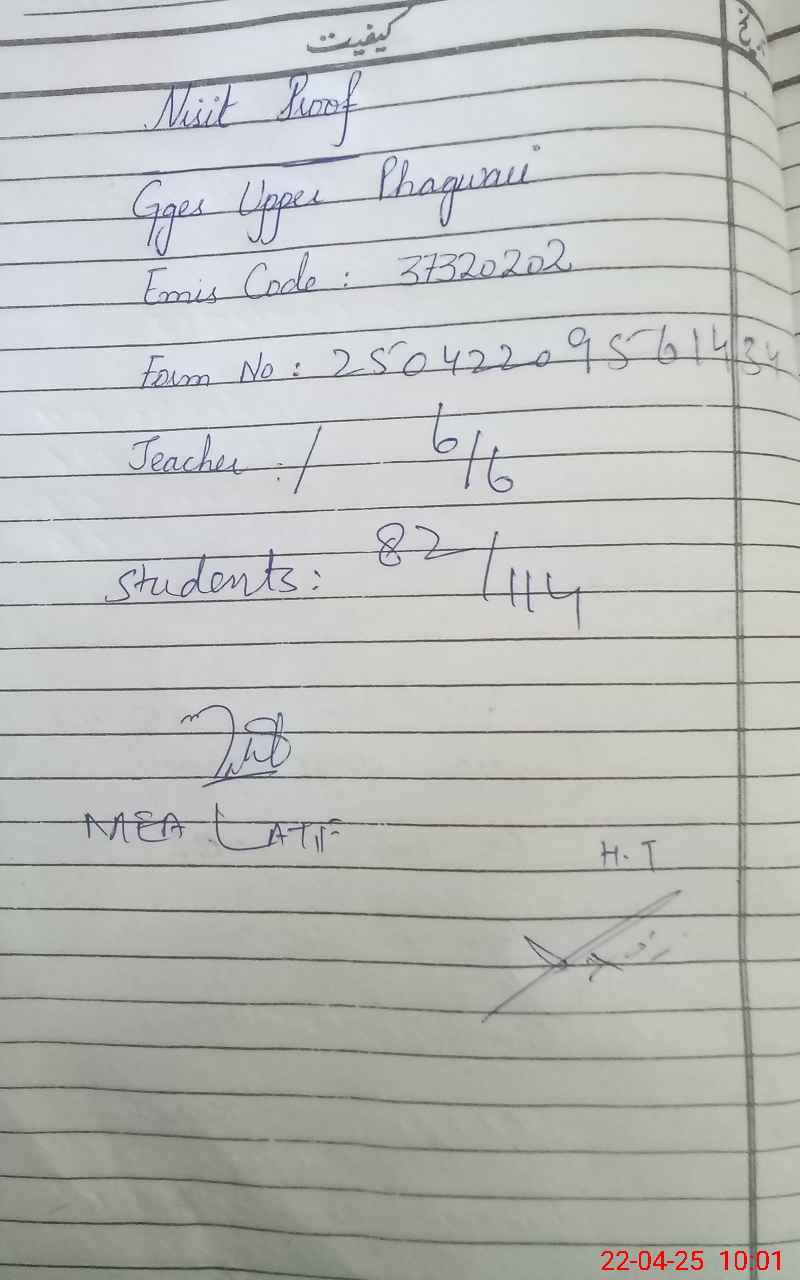 کیفیت
Visit Proof
Gges Upper Phagwari
Emis Code : 37320202
Form No : 250422095614 34
Teacher :/ 6/6
Students: 82/114
MEA LATIF
H.T
22-04-25 10:01